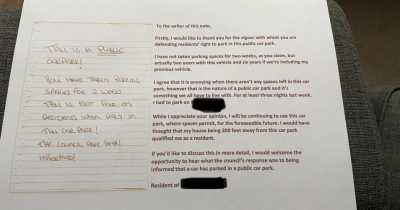 THIS IS A PUBLIC
CARPARK!
YOU HAVE TAKEN PARKING
SPACES FOR 2 WEEKS
THIS IS NOT FAIR ON
RESIDENTS WHO RELY ON
THIS CAR PARK!
THE COUNCIL HAVE BEEN
INFORMED!
To the writer of this note,
Firstly, I would like to thank you for the vigour with which you are
defending residents' right to park in this public car park.
I have not taken parking spaces for two weeks, as you claim, but
actually two years with this vehicle and six years if we're including my
previous vehicle.
I agree that it is annoying when there aren't any spaces left in this car
park, however that is the nature of a public car park and it's
something we all have to live with. For at least three nights last week,
I had to park on
While I appreciate your opinion, I will be continuing to use this car
park, where spaces permit, for the foreseeable future. I would have
thought that my house being 200 feet away from this car park
qualified me as a resident.
If you'd like to discuss this in more detail, I would welcome the
opportunity to hear what the council's response was to being
informed that a car has parked in a public car park.
Resident of